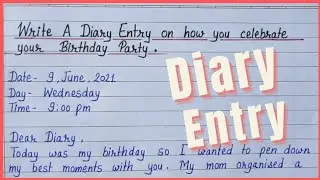 Write A Diary Entry on how you celebrate
your Birthday Party.
Date- 9, June, 2021
Day- Wednesday
Time- 9:00 pm
Dear Diary,
Today was my birthday so I wanted to pen down
my best moments with you. My mom organised a
Diary
Entry